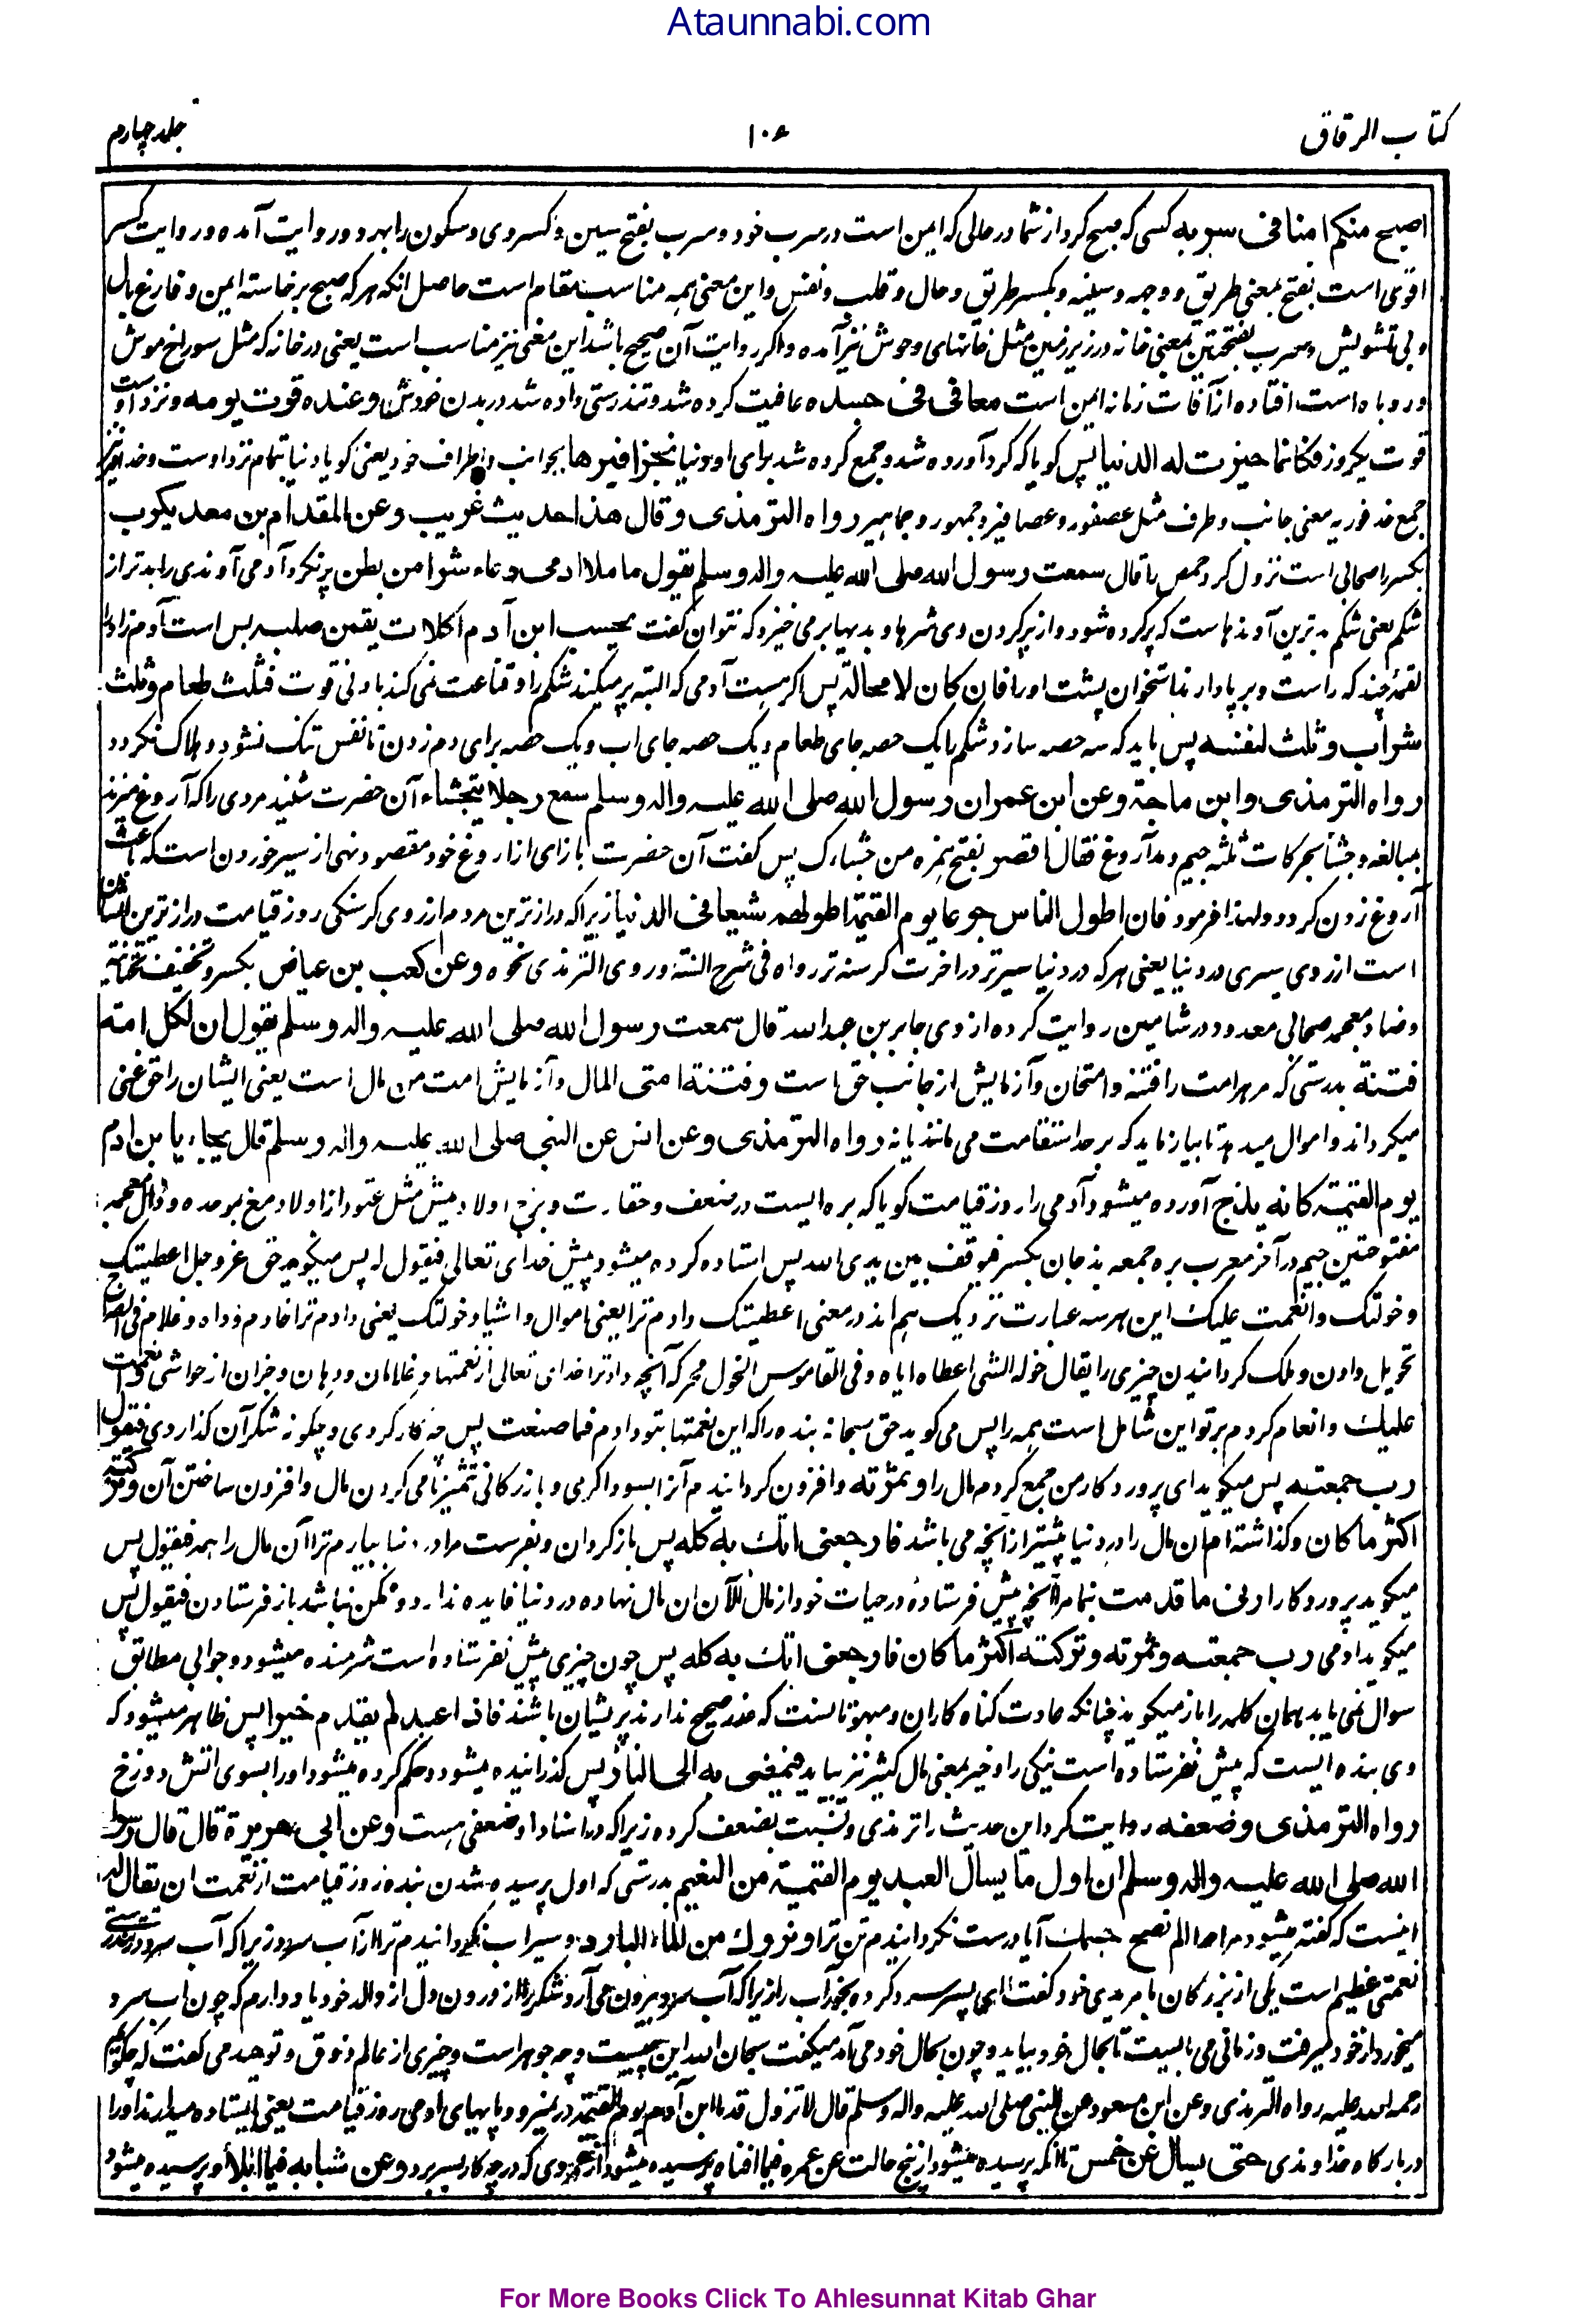 Ataunnabi.com
کتاب الرقاق
۱۰۶
جلد چهارم
اصبح منکم امنا فی سربه کسی که صبح کرد از شما در حالی که ایمن است در سرب خود و سرب بفتح سین و کسر وی و سکون را بهر دو روایت آمده و روایت کسر
اقوی است بفتح بمعنی طریق و وجه و سینه و بکسر طریق و حال و قلب و نفس و این معنی همه مناسب مقام است حاصل انکه هر که صبح برخاسته ایمن و فارغ بال
و بی تشویش و سرب بفتحتین بمعنی خانه در زیر زمین مثل خانهای وحوش نیز آمده و اگر روایت آن صحیح باشد این معنی نیز مناسب است یعنی در خانه که مثل سوراخ موش
و روباه است افتاده از آفات زمانه ایمن است معافی فی جسده عافیت کرده شد و تندرستی داده شد در بدن خودش و عنده قوت یومه و نزد اوست
قوت یکروز فکانما حیزت له الدنیا پس گویا که گرد آورده شد و جمع کرده شد برای او دنیا بحذافیرها بجوانب و اطراف خود یعنی گویا دنیا بتمام نزد اوست و حذافیر
جمع حذفور به معنی جانب و طرف مثل عصفور و عصافیر و جمهور و جماهیر رواه الترمذی و قال هذا حدیث غریب و عن المقدام بن معدیکرب
بکسر را صحابی است نزول کرد حمص را قال سمعت رسول الله صلی الله علیه واله وسلم یقول ما ملا ادمی وعاء شرا من بطن پر نکرد آدمی آوندی را بدتر از
شکم یعنی شکم بدترین آوندهاست که پر کرده شود و از پر کردن وی شرها و بدیها بر می خیزد که نتوان گفت بحسب ابن آدم اکلات یقمن صلبه بس است آدم زاد را
لقمهٔ چند که راست و بر پا دارند استخوان پشت او را فان کان لا محالة پس اگر هست آدمی که البته پر میکند شکم را و قناعت نمی کند بادنی قوت فثلث طعام و ثلث
شراب و ثلث لنفسه پس باید که سه حصه سازد شکم را یک حصه جای طعام و یک حصه جای اب و یک حصه برای دم زدن تا نفس تنگ نشود و هلاک نگردد
رواه الترمذی وابن ماجة وعن ابن عمر ان رسول الله صلی الله علیه واله وسلم سمع رجلا یتجشاء آن حضرت شنید مردی را که آروغ میزند
بمبالغه و جشأ بحرکات ثلثه جیم و مد آروغ فقال اقصر بفتح همزه من جشاءک پس گفت آن حضرت باز ای از اروغ خود مقصود نهی از سیر خوردن است که باعث
آروغ زدن گردد و لهذا فرمود فان اطول الناس جوعا یوم القیمة اطولهم شبعا فی الدنیا زیرا که درازترین مردم از روی گرسنگی روز قیامت درازترین ایشان
است از روی سیری در دنیا یعنی هر که در دنیا سیرتر در اخرت گرسنه تر رواه فی شرح السنة و روی الترمذی نحوه و عن کعب بن عیاض بکسر و تخفیف تحتانیه
وضاد معجمه صحابی معدود در شامیین روایت کرده از وی جابر بن عبد الله قال سمعت رسول الله صلی الله علیه واله وسلم یقول ان لکل امة
فتنة بدرستی که مر هر امت را فتنه و امتحان و آزمایش از جانب حق است و فتنة امتی المال و آزمایش امت من مال است یعنی ایشان را حق غنی
میگرداند و اموال میدهد تا بیازماید که بر حد استقامت می مانند یا نه رواه الترمذی وعن انس عن النبی صلی الله علیه واله وسلم قال یجاء بابن ادم
یوم القیمة کانه بذج آورده میشود آدمی را روز قیامت گویا که بره ایست در ضعف و حقارت و بذج اولاد میش مثل عتود از اولاد معز بموحده و ذال معجمه
مفتوحتین جیم در آخر معرب بره جمعه بذجان بکسر فیوقف بین یدی الله پس استاده کرده میشود پیش خدای تعالی فیقول له پس میگوید حق عز و جل اعطیتک
وخولتک وانعمت علیک این هر سه عبارت نزدیک هم اند در معنی اعطیتک دادم ترا یعنی اموال و اشیا و خولتک یعنی دادم ترا خادم و داه و غلام فی الصراح
تخویل دادن و ملک گردانیدن چیزی را یقال خوله الشئ اعطاه ایاه و فی القاموس الخول محرکه آنچه داد ترا خدای تعالی از نعمتها و غلامان و دهان و جزان از حواشی وانعمت
علیک و انعام کردم بر تو این شامل است همه را پس می گوید حق سبحانه بنده را که این نعمتها بتو دادم فما صنعت پس چه کار کردی و چگونه شکر آن گذاردی فیقول
رب جمعته پس میگوید ای پروردگار من جمع کردم مال را و ثمرته و افزون گردانیدم آنرا بسوداگری و بازرگانی تثمیر نامی کردن مال و افزون ساختن آن وترکته
اکثر ما کان و گذاشته ام ان مال را در دنیا بیشتر از آنچه می باشد فارجعنی اتک به کله پس باز گردان و بفرست مرا در دنیا بیارم ترا آن مال را همه فیقول پس
میگوید پروردگار ارنی ما قدمت بنما مرا آنچه پیش فرستادهٔ در حیات خود از مال الآن ان مال نهاده در دنیا فایده ندارد و ممکن نباشد باز فرستادن فیقول پس
میگوید ادمی رب جمعته وثمرته وترکته اکثر ما کان فارجعنی اتک به کله پس چون چیزی پیش نفرستاده است شرمنده میشود و جوابی مطابق
سوال نمی یابد همان کلمه را باز میگوید چنانکه عادت گناه کاران و مبهوتانست که عذر صحیح ندارند پریشان باشند فاذا عبد لم یقدم خیرا پس ظاهر میشود که
وی بنده ایست که پیش نفرستاده است نیکی را و خیر بمعنی مال کثیر نیز بیاید فیمضی به الی النار پس گذرانیده میشود و حکم کرده میشود او را بسوی اتش دوزخ
رواه الترمذی وضعفه روایت کرد این حدیث را ترمذی و نسبت بضعف کرده زیرا که در اسناد او ضعفی هست وعن ابی هریرة قال قال رسول
الله صلی الله علیه واله وسلم ان اول ما یسأل العبد یوم القیمة من النعیم بدرستی که اول پرسیده شدن بنده روز قیامت از نعمت ان یقال له
اینست که گفته میشود مر او را الم نصح جسمک آیا درست نگردانیدم تن ترا ونروک من الماء البارد و سیراب نگردانیدم ترا از آب سرد زیرا که آب سرد و تندرستی
نعمتی عظیم است یکی از بزرگان با مریدی خود گفت ای پسر سرد کرده بخور آب را زیرا که آب سرد بیرون می آرد شکر را از درون دل از والد خود یاد دارم که چون اب سرد
میخورد از خود میرفت و زمانی می بایست تا بحال خود بیاید و چون بحال خود می آمد میگفت سبحان الله این چیست و چه جوهر است و چیزی از عالم ذوق و توحید می گفت که چگویم
رحمه الله علیه رواه الترمذی وعن ابن مسعود عن النبی صلی الله علیه واله وسلم قال لا تزول قدما ابن آدم یوم القیمة در نمیرود پایهای ادمی روز قیامت یعنی ایستاده میدارند او را
در بارگاه خداوندی حتی یسال عن خمس تا انکه پرسیده میشود از پنج حالت عن عمره فیما افناه پرسیده میشود از عمر وی که در چه کار بسر برد و عن شبابه فیما ابلاه و پرسیده میشود
For More Books Click To Ahlesunnat Kitab Ghar